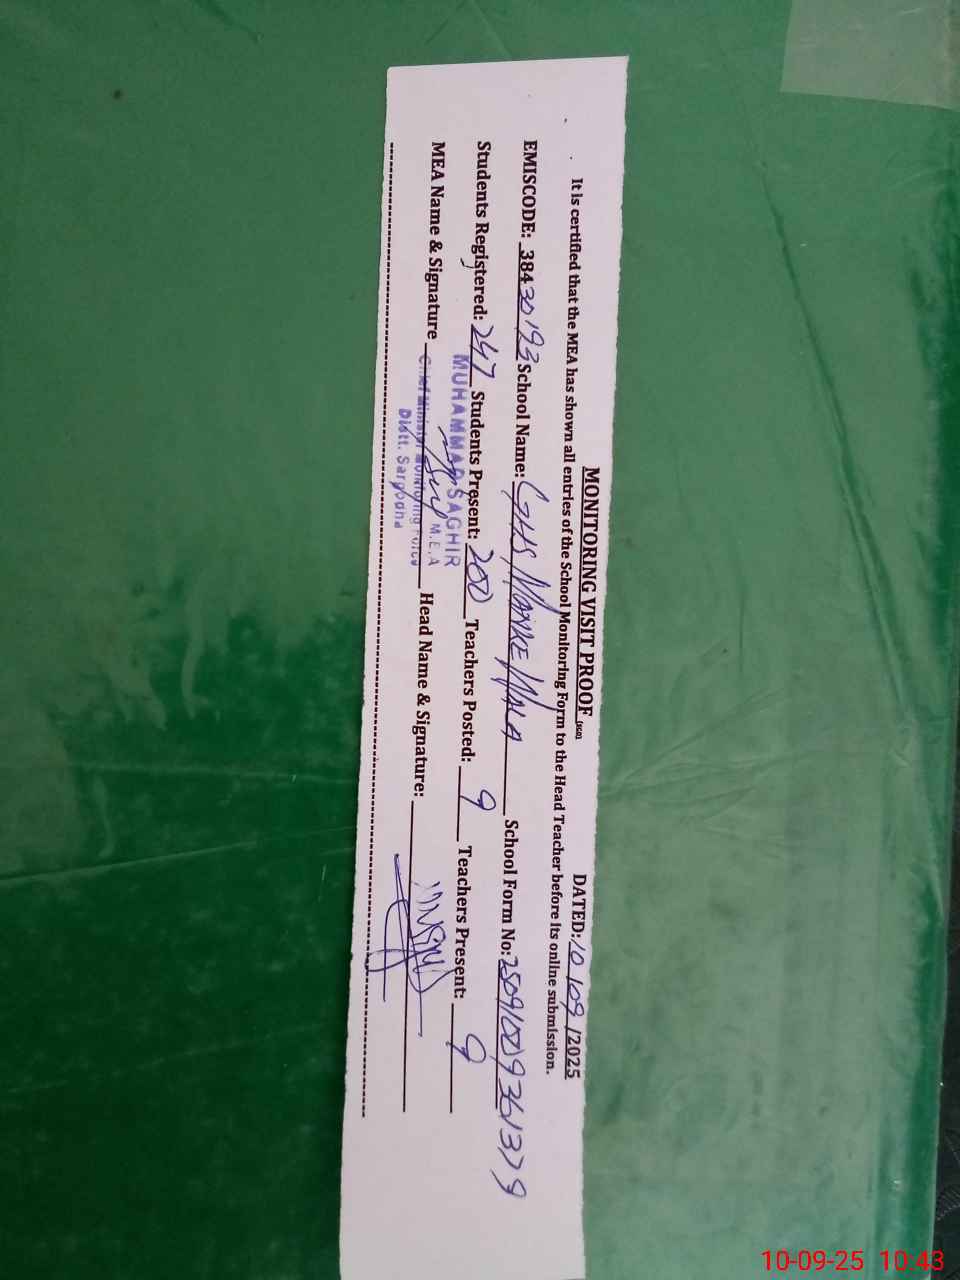 MONITORING VISIT PROOF (SGD) DATED: 10/09/2025
It is certified that the MEA has shown all entries of the School Monitoring Form to the Head Teacher before its online submission.
EMISCODE: 38430193 School Name: GHS, School Form No:
Students Registered: 247 Students Present: 200 Teachers Posted: 9 Teachers Present: 9
MEA Name & Signature Head Name & Signature:
MUHAMMAD SAGHIR
M.E.A
Chief Minister Monitoring Force
Distt. Sargodha
10-09-25 10:43